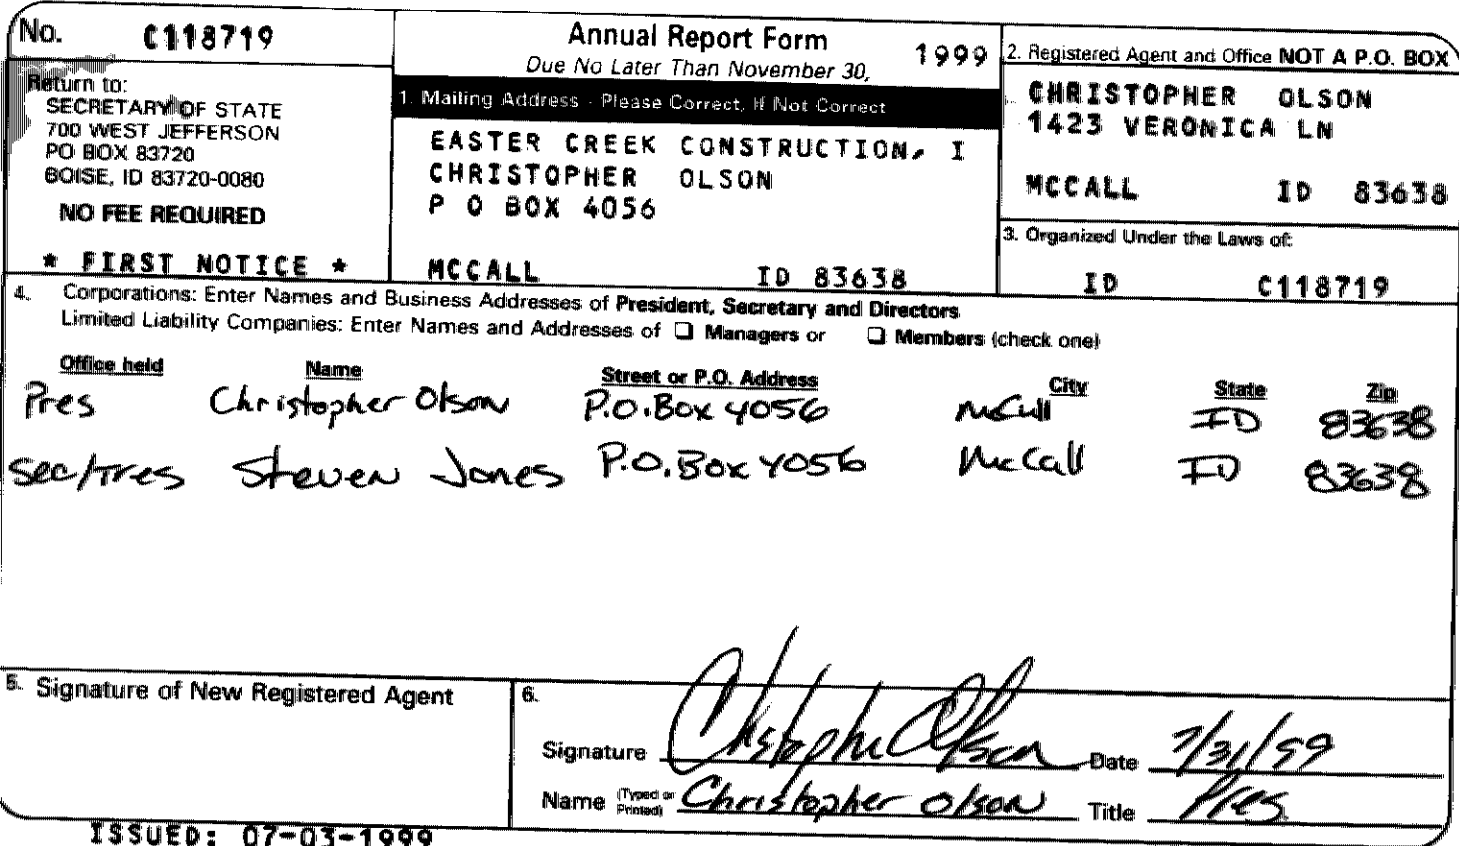 No. C118719
Return to:
SECRETARY OF STATE
700 WEST JEFFERSON
PO BOX 83720
BOISE, ID 83720-0080
NO FEE REQUIRED
* FIRST NOTICE *
Annual Report Form 1999
Due No Later Than November 30,
1. Mailing Address - Please Correct, If Not Correct
EASTER CREEK CONSTRUCTION, I
CHRISTOPHER OLSON
P O BOX 4056
MCCALL ID 83638
2. Registered Agent and Office NOT A P.O. BOX
CHRISTOPHER OLSON
1423 VERONICA LN
MCCALL ID 83638
3. Organized Under the Laws of:
ID C118719
4. Corporations: Enter Names and Business Addresses of President, Secretary and Directors
Limited Liability Companies: Enter Names and Addresses of ☐ Managers or ☐ Members (check one)
Office held Name Street or P.O. Address City State Zip
Pres Christopher Olson P.O. Box 4056 McCall ID 83638
Sec/Tres Steven Jones P.O. Box 4056 McCall ID 83638
5. Signature of New Registered Agent
6.
Signature Christopher Olson Date 7/31/99
Name (Typed or Printed) Christopher Olson Title Pres.
ISSUED: 07-03-1999